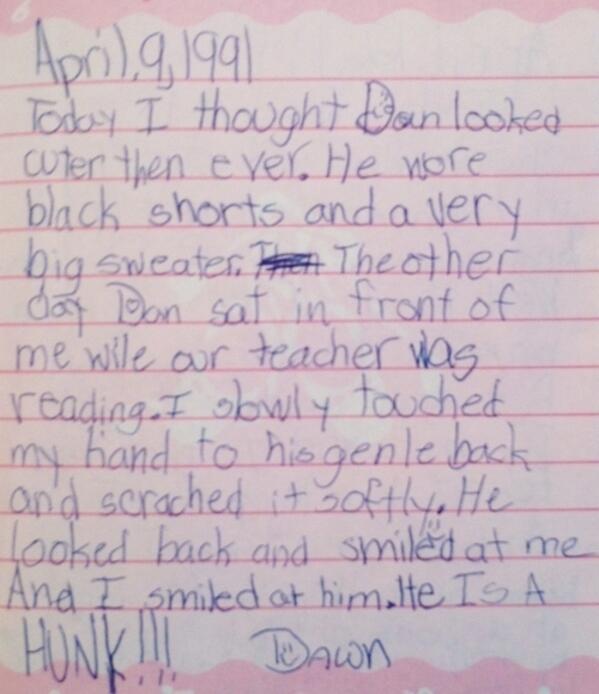 April, 9, 1991
Today I thought Dan looked
cuter then ever. He wore
black shorts and a very
big sweater. Then The other
day Dan sat in front of
me wile our teacher was
reading. I slowly touched
my hand to his genle back
and scrached it softly. He
looked back and smiled at me
And I smiled at him. He Is A
HUNK!!! Dawn